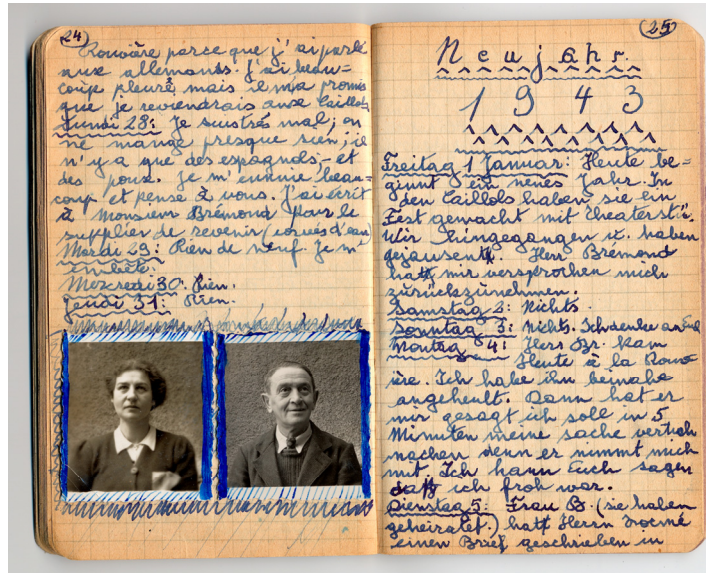 24
Rouvière parce que j'ai parlé
aux allemands. J'ai beau=
coup pleuré, mais il m'a promis
que je reviendrais aux Caillols
Lundi 28: Je suis très mal; on
ne mange presque rien; il
n'y a que des espagnols,- et
des poux. Je m'ennuie beau=
coup et pense à vous. J'ai écrit
à Monsieur Brémond pour le
supplier de revenir (corvées d'eau)
Mardi 29: Rien de neuf. Je m'
embête.
Mercredi 30. Rien.
Jeudi 31: Rien.
25
Neujahr.
1943
Freitag 1 Januar: Heute be=
ginnt ein neues Jahr. In
den Caillols haben sie ein
Fest gemacht mit Theaterst.
Wir hingegangen u. haben
Herr Brémond
hatt mir versprochen mich
zurückzunehmen.
Samstag 2: Nichts.
Sonntag 3: Nichts. Ich denke an Euch
Montag 4: Herr Br. kam
Heute à la Rouv=
ière. Ich habe ihn beinahe
angeheult. Dann hat er
mir gesagt ich soll in 5
Minuten meine sache vertich
machen denn er nimmt mich
mit. Ich kann Euch sagen
daß ich froh war.
Dienstag 5: Frau B. (sie haben
geheiratet.) hatt Herrn
einen Brief geschrieben in